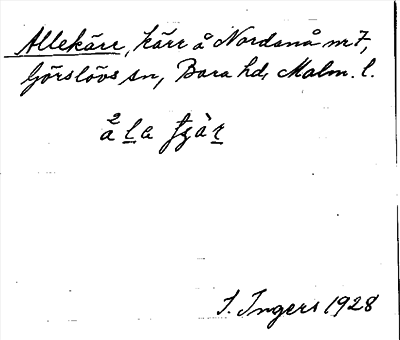 Allekärr, kärr å Nordanå nr 7,
Görslövs sn, Bara hd, Malm. l.
I. Ingers 1928